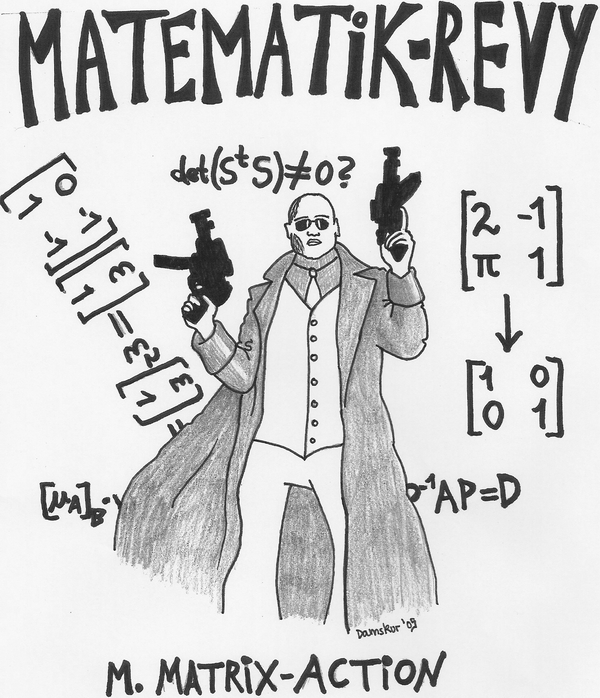 MATEMATiK-REVY
det(SᵗS)≠0?
[0 -1
1 -1][ε
1]=ε²[ε
1]=
[2 -1
π 1]
↓
[1 0
0 1]
⁻¹AP=D
Damskur '09
M. MATRiX-ACTiON